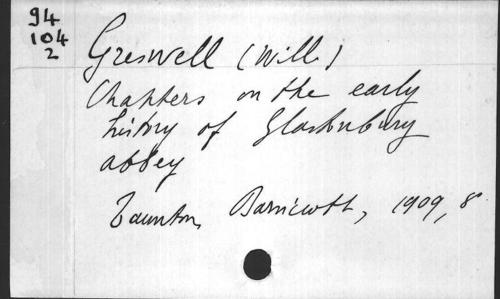 94
104
2
Greswell (Will.)
Chapters on the early
history of Glastonbury
abbey
Taunton, Barnicott, 1909, 8°